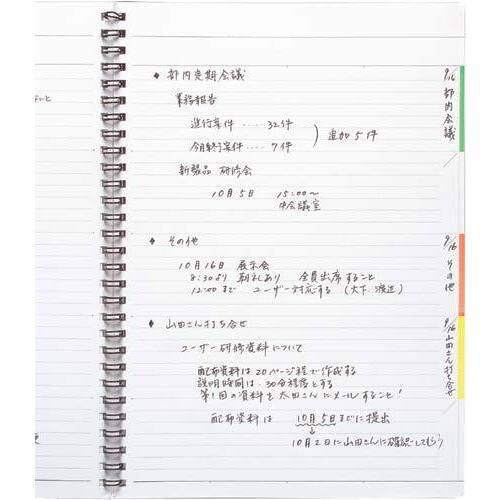 ◆ 部内定期会議
業務報告
進行案件 ‥‥ 32件
今月終了案件 ‥‥ 7件
追加5件
新製品 研修会
10月5日 15:00〜
中会議室
◆ その他
10月16日 展示会
8:30より 朝礼あり 全員出席すること
12:00まで ユーザー対応する (大下、渡辺)
◆ 山田さん打ち合せ
ユーザー研修資料について
配布資料は20ページ程で作成する
説明時間は、30分程度とする
第1回の資料を太田さんにメールすること!
配布資料は 10月5日までに提出
↓
10月2日に山田さんに確認してもらう
9/16 部内会議
9/16 その他
9/16 山田さん打ち合せ